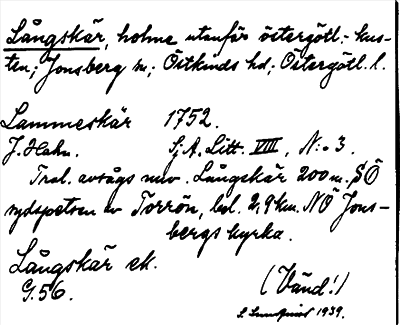 Långskär, holme utanför östergötl. kus-
ten; Jonsberg sn; Östkinds hd; Östergötl. l.
Lammeskär 1752.
J. Hahn. Sj. A. Litt. VIII, N:o 3.
Trol. avsågs nuv. Långskär 200 m. SÖ
sydspetsen av Torrön, bel. 2,9 km. NÖ Jons-
bergs kyrka.
Långskär ek.
G. 56.
(Vänd!)
1939.